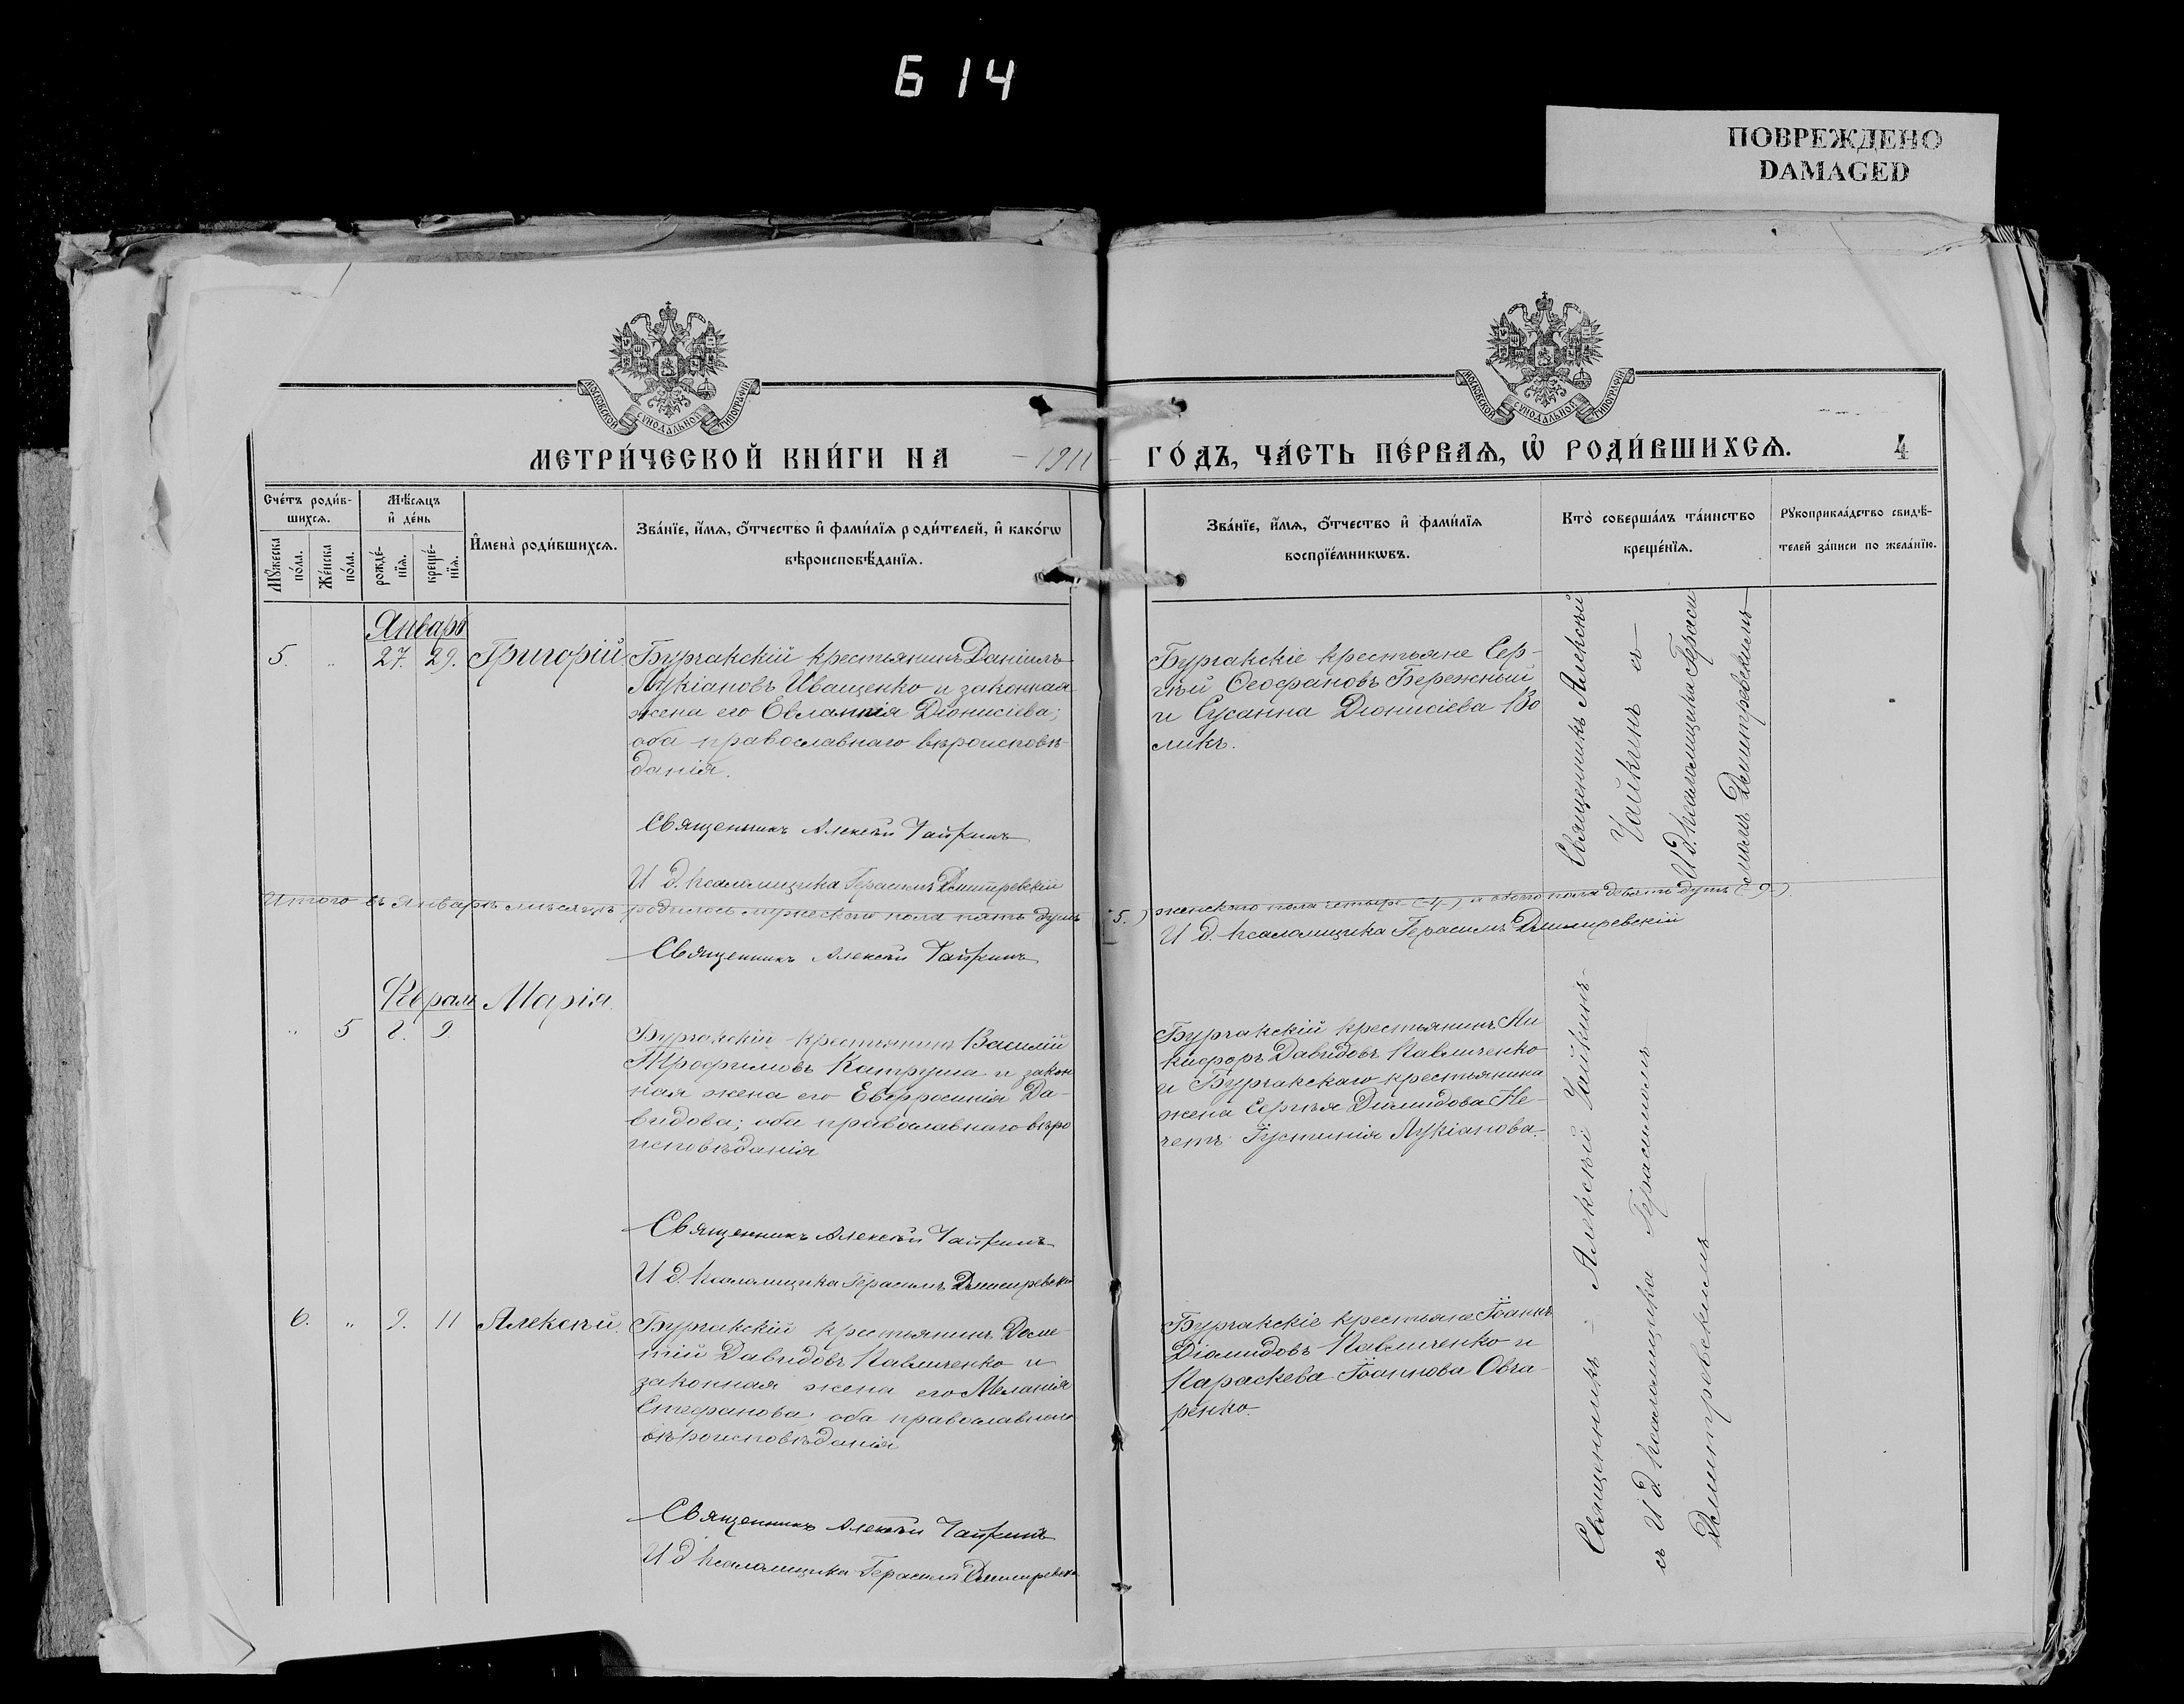 Б 14
ПОВРЕЖДЕНО
DAMAGED
МОСКОВСКОЙ СѴНОДАЛЬНОЙ ТИПОГРАФІИ
МОСКОВСКОЙ СѴНОДАЛЬНОЙ ТИПОГРАФІИ
МЕТРИ́ЧЕСКОЙ КНИ́ГИ НА 1911 ГО́ДЪ, ЧА́СТЬ ПЕ́РВАѦ, Ѡ҆ РОДИ́ВШИХСѦ.
4
Сче́тъ роди́в-
шихсѧ.
Мѣ́сѧцъ
и҆ де́нь
Мꙋ́жеска
по́ла.
Же́нска
по́ла.
рожде́-
нїѧ.
креще́-
нїѧ.
И҆мена̀ роди́вшихсѧ.
Зва́нїе, и҆́мѧ, ѻ҆́тчество и҆ фами́лїѧ роди́телей, и҆ како́гѡ
вѣроисповѣ́данїѧ.
Зва́нїе, и҆́мѧ, ѻ҆́тчество и҆ фами́лїѧ
воспрїе́мникѡвъ.
Кто̀ соверша́лъ та́инство
креще́нїѧ.
Рꙋкоприкла́дство свидѣ́-
телей за́писи по жела́нїю.
Январь
5. " 27. 29. Григорій
Бургакскій крестьянинъ Даніилъ
Лукіановъ Иващенко и законная
жена его Евлампія Діонисіева;
оба православнаго вѣроисповѣ-
данія.
Священникъ Алексѣй Чайкинъ
И д. псаломщика Герасимъ Дмитревскій
Бургакскіе крестьяне Сер-
гѣй Ѳеофановъ Бережный
и Сусанна Діонисіева Во
ликъ.
Священникъ Алексѣй
Чайкинъ съ
И д. псаломщика Гераси
момъ Дмитревскимъ
Итого въ Январѣ мѣсяцѣ родилось мужескаго пола пять душъ (5.) женскаго пола четыре (-4-) и обоего пола девять душъ (-9-).
Священникъ Алексѣй Чайкинъ
И д. псаломщика Герасимъ Дмитревскій
Феврал
Марія.
" 5 2. 9.
Бургакскій крестьянинъ Василій
Трофимовъ Катруша и закон
ная жена его Евфросинія Да-
видова; оба православнаго вѣро
исповѣданія
Священникъ Алексѣй Чайкинъ
И д. псаломщика Герасимъ Дмитревскій
Бургакскій крестьянинъ Ни
кифоръ Давидовъ Павличенко
и Бургакскаго крестьянина
жена Сергѣя Діомидова Не-
четъ Іустинія Лукіанова.
6. " 9. 11 Алексѣй.
Бургакскій крестьянинъ Доме-
тій Давидовъ Павличенко и
законная жена его Меланія
Стефанова; оба православнаго
вѣроисповѣданія
Священникъ Алексѣй Чайкинъ
И д псаломщика Герасимъ Дмитревскій
Бургакскіе крестьяне Іоаннъ
Діомидовъ Павличенко и
Параскева Іоаннова Овча-
ренко.
Священникъ - Алексѣй Чайкинъ-
съ И д. псаломщика Герасимомъ
Дмитревскимъ